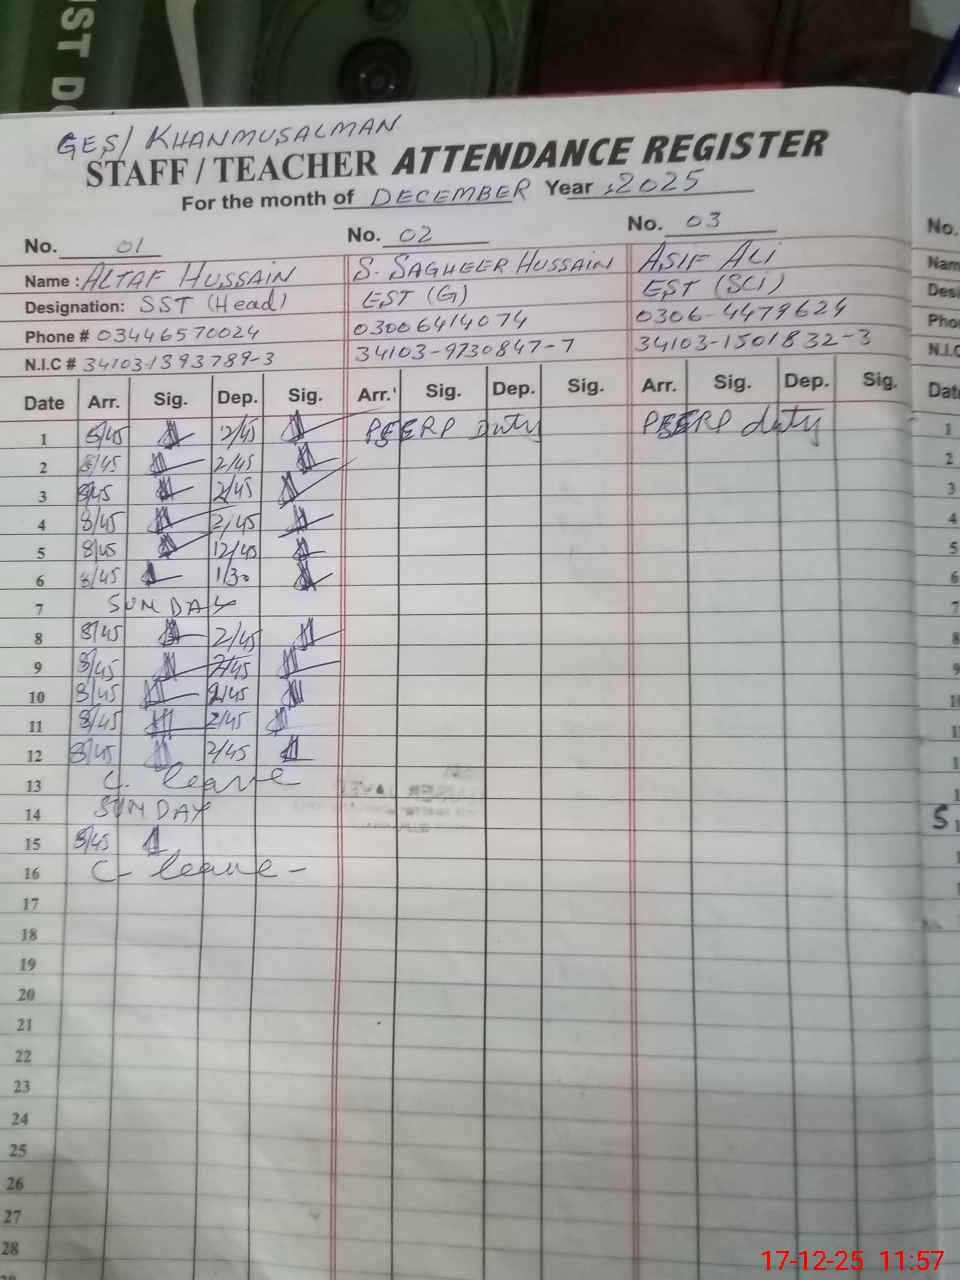 UST D
GES/ KHANMUSALMAN
STAFF / TEACHER ATTENDANCE REGISTER
For the month of DECEMBER Year 2025
No. 01 No. 02 No. 03 No.
Name : ALTAF HUSSAIN S. SAGHEER HUSSAIN ASIF ALI Nam
Designation: SST (Head) EST (G) EST (SCi) Desi
Phone # 03446570024 03006414074 0306-4479624 Pho
N.I.C # 34103-1393789-3 34103-9730847-7 34103-1501832-3 N.I.C
Date Arr. Sig. Dep. Sig. Arr. Sig. Dep. Sig. Arr. Sig. Dep. Sig. Dat
1 8/45 2/45 PEERP Duty PEERP duty 1
2 8/45 2/45 2
3 8/45 2/45 3
4 8/45 2/45 4
5 8/45 12/40 5
6 8/45 1/30 6
7 SUNDAY 7
8 8/45 2/45 8
9 8/45 2/45 9
10 8/45 2/45
11 8/45 2/45
12 8/45 2/45
13 C. leave
14 SUNDAY
15 8/45
16 C- leave -
17
18
19
20
21
22
23
24
25
26
27
28
17-12-25 11:57